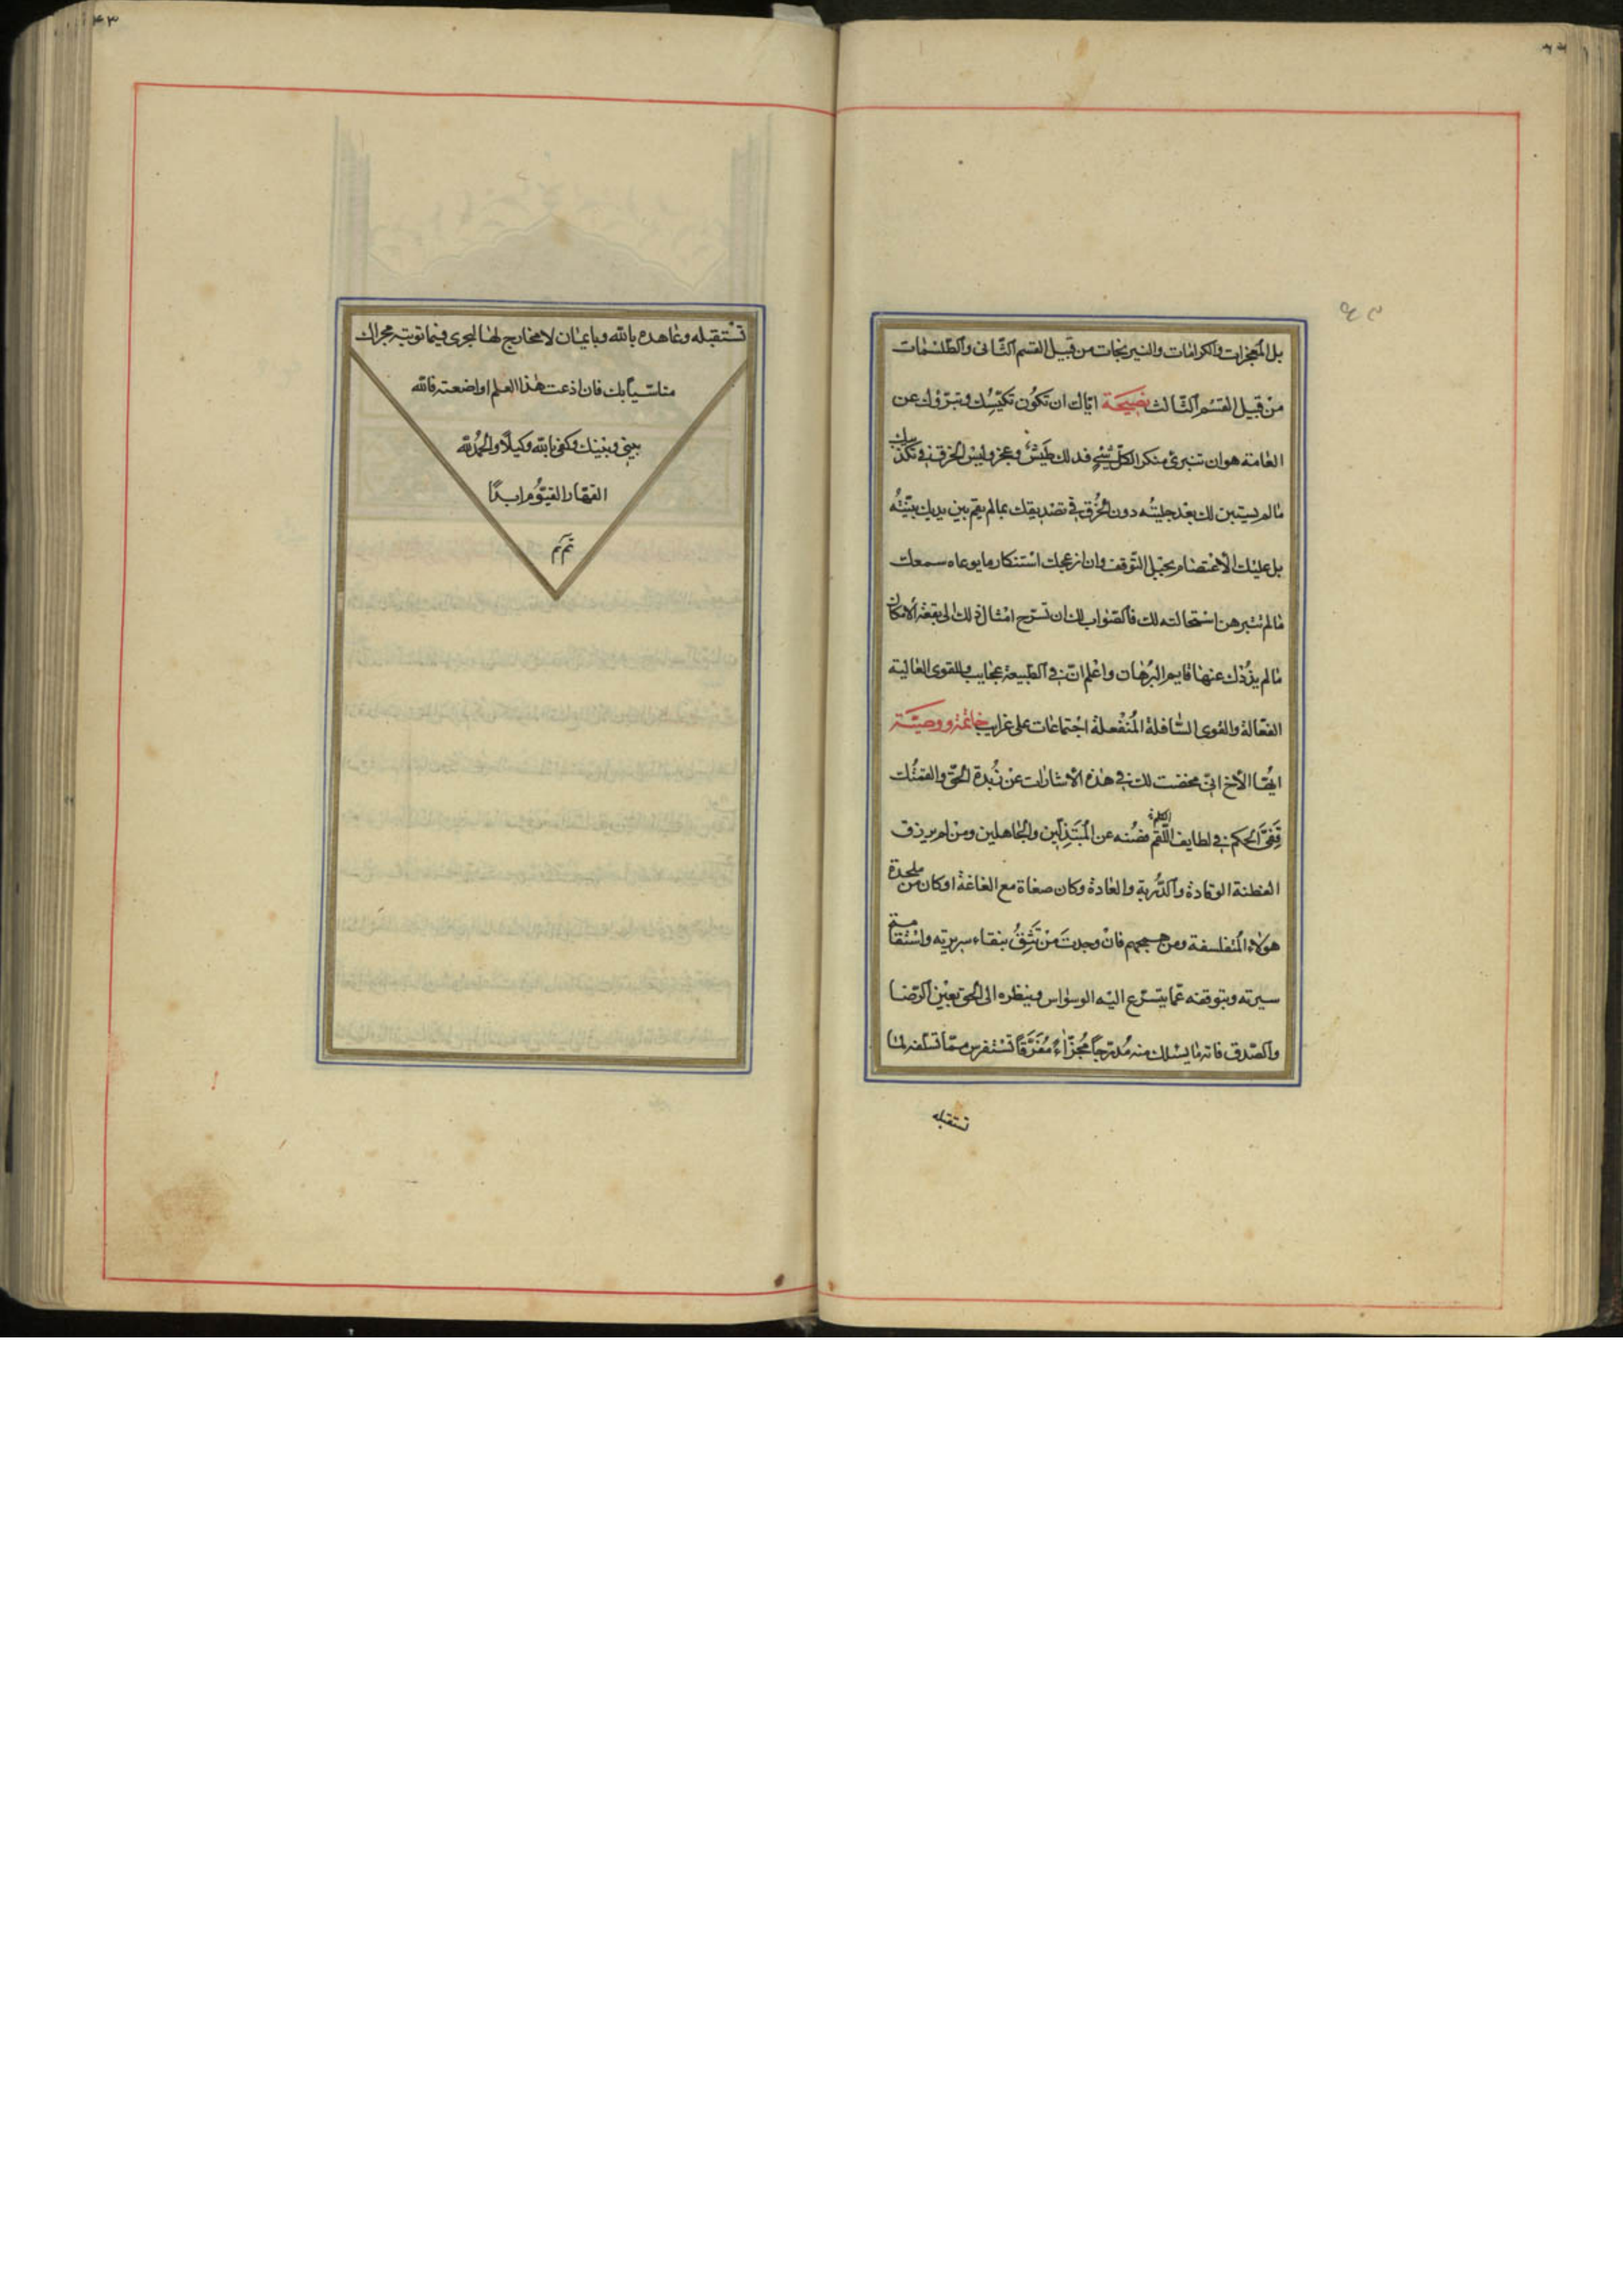 بل المعجزات والكرامات والنيرنجات من قبيل القسم الثانى والطلسمات
من قبيل القسم الثالث نصيحة اياك ان تكون تكيسك وتبرؤك عن
العامة هو ان تنبرى منكرا لكل شىء فذلك طيش وعجز وليس الخرق فى تكذيبك
مالم يستبن لك بعد جليته دون الخرق فى تصديقك بمالم يقم بين يديك بينته
بل عليك الاعتصام بحبل التوقف وان ازعجك استنكار ما يوعاه سمعك
مالم تتبرهن استحالته لك فالصواب لك ان تسرح امثال ذلك الى بقعة الامكان
مالم يذدك عنها قايم البرهان واعلم ان فى الطبيعة عجايب وللقوى العالية
الفعالة والقوى السافلة المنفعلة اجتماعات على غرايب خاتمة ووصية
ايها الاخ انى مخضت لك فى هذه الاشارات عن زبدة الحق والقمتك
قفى الحكم فى لطايف الكلم فصنه عن المبتذلين والجاهلين ومن لم يرزق
الفطنة الوقادة والدربة والعادة وكان صغاة مع الغاغة او كان من ملحدة
هولاء المتفلسفة ومن همجهم فان وجدت من تثق بنقاء سريرته واستقامة
سيرته وبتوقفه عما يتسرع اليه الوسواس وبنظره الى الحق بعين الرضا
والصدق فاته ما يسلك منه مدرجا مجزاء مفرقا تستفرس مما تسلفه لما
تستقبله
تستقبله وعاهده بالله وبايمان لا مخارج لها ليجرى فيما توتيه مجراك
متاسيا بك فان اذعت هذا العلم او اضعته فالله
بينى وبينك وكفى بالله وكيلا والحمد لله
القهار القيوم ابدا
تم تم
۴۳